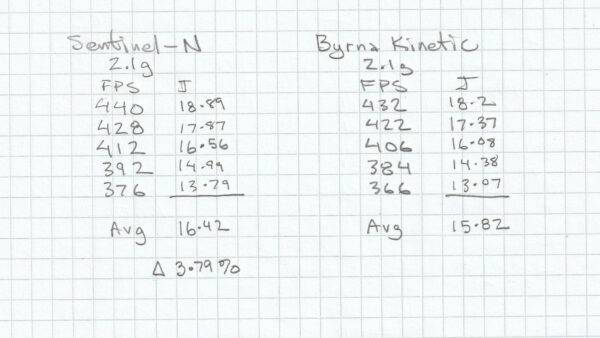 Sentinel-N Byrna Kinetic
2.1g 2.1g
FPS J FPS J
440 18.89 432 18.2
428 17.87 422 17.37
412 16.56 406 16.08
392 14.99 384 14.38
376 13.79 366 13.07
Avg 16.42 Avg 15.82
Δ 3.79%